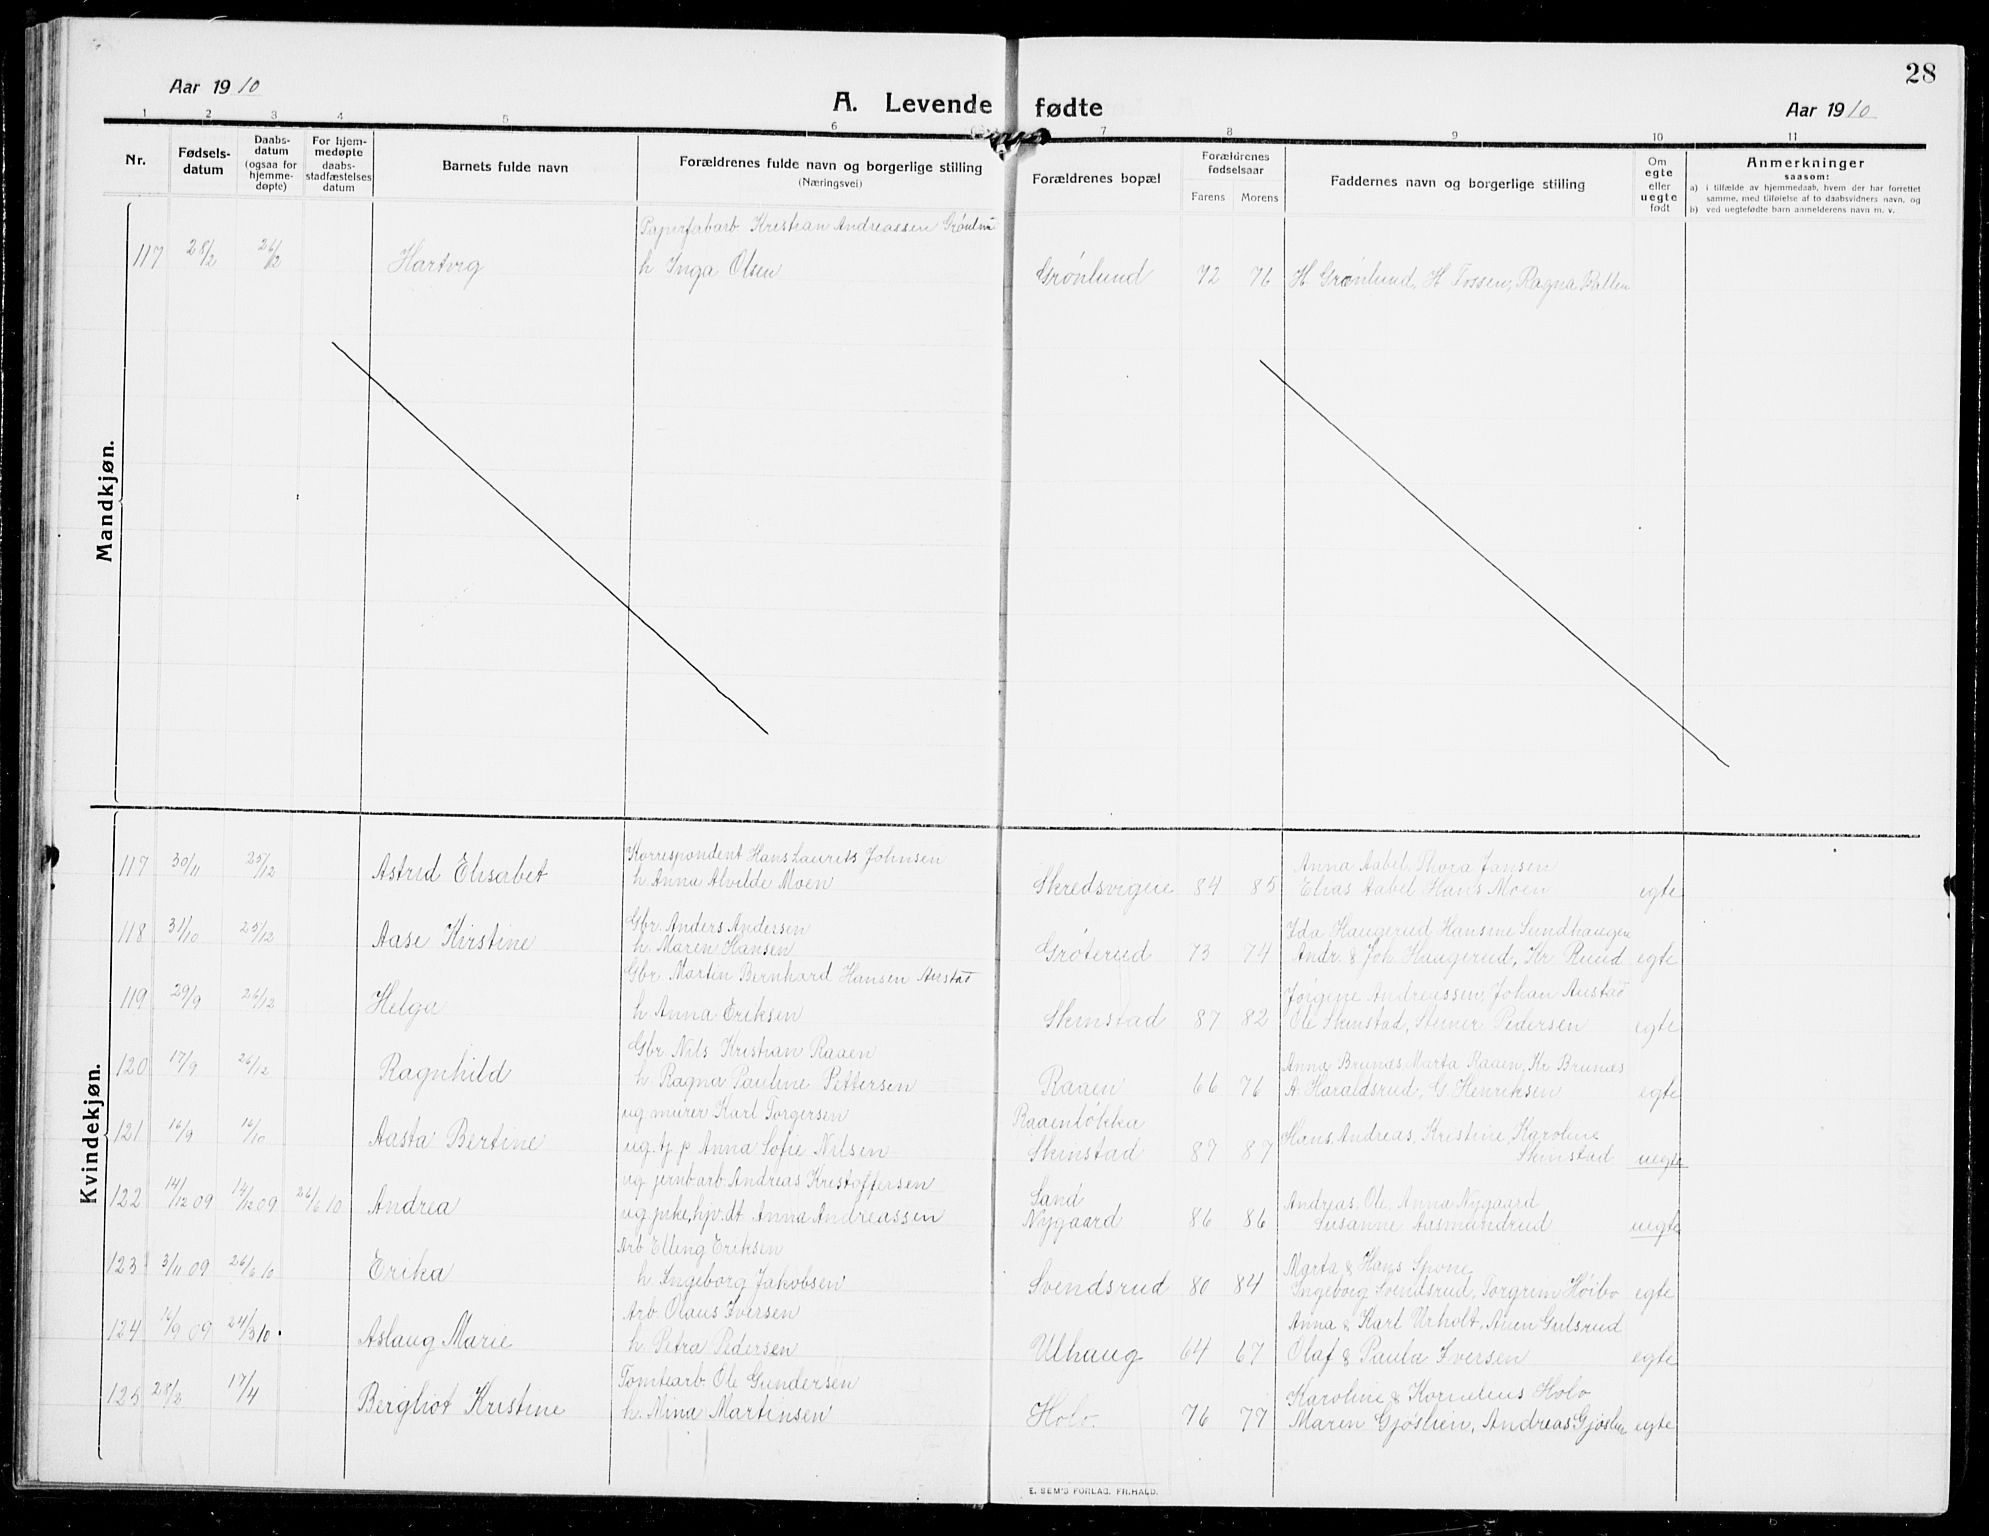 28
Aar 1910
A. Levende fødte
Aar 1910
1 2 3 4 5 6 7 8 9 10 11
Nr.
Fødsels-
datum
Daabs-
datum
(ogsaa for
hjemme-
døpte)
For hjem-
medøpte
daabs-
stadfæstelses
datum
Barnets fulde navn
Forældrenes fulde navn og borgerlige stilling
(Næringsvei)
Forældrenes bopæl
Forældrenes
fødselsaar
Farens Morens
Faddernes navn og borgerlige stilling
Om
egte
eller
uegte
født
Anmerkninger
saasom:
a) i tilfælde av hjemmedaab, hvem der har forrettet
samme, med tilføielse af to daabsvidners navn, og
b) ved uegtefødte barn anmelderens navn m. v.
Mandkjøn.
Papirfabarb Kristian Andreassen
117 28/2 26/2 Hartvig h Inga Olsen Grønlund 72 76 H. Grønlund, H Fossen, Ragna
Kvindekjøn.
Korrespondent Hans Laurits Johnsen Anna Aabel, Thora Jansen
117 30/11 25/12 Astrid Elisabet h Anna Alvilde Moen Skredsvigeie 84 85 Elias Aabel Hans Moen egte
Gbr. Anders Andersen Ida Haugerud Hansine Sundhaugen
118 31/10 25/12 Aase Kirstine h. Maren Hansen Grøterud 73 74 Andr. & Joh. Haugerud, Kr Ruud egte
Gbr Marten Bernhard Hansen Austad Jørgine Andreassen, Johan Austad
119 29/9 26/12 Helga h Anna Eriksen Skinstad 87 82 Ole Skinstad, Steiner Pedersen egte
Gbr. Nils Kristian Raaen Anna Brunæs Marta Raaen, Kr Brunæs
120 17/9 26/12 Ragnhild h Ragna Pauline Pettersen Raaen 66 76 A. Haraldsrud, G. Henriksen egte
ug murer Karl Torgersen Raaentøkka Hans, Andreas, Kristine, Karoline
121 16/9 16/10 Aasta Bertine ug. tj. p Anna Sofie Nilsen Skinstad 87 87 Skinstad uegte
ug jernbarb. Andreas Kristoffersen Sand Andreas, Ole, Anna Nygaard
122 14/12 09 14/12 09 26/6 10 Andrea ug pike, hjv. dt Anna Andreassen Nygaard 86 86 Susanne Aasmandrud uegte
Arb Elling Eriksen Marta & Hans Spone
123 3/11 09 26/6 10 Erika h Ingeborg Jakobsen Svendsrud 80 84 Ingeborg Svendsrud, Torgrim Høibo egte
Arb. Olaus Iversen Anna & Karl Urholt, Anen Gulsrud
124 16/9 09 24/3 10 Aslaug Marie h. Petra Pedersen Ulhaug 64 67 Olaf & Paula Iversen egte
Tomtearb Ole Gundersen Karoline & Kornelius Holo
125 28/2 17/4 Bergliot Kristine h. Mina Martinsen Holo. 76 77 Maren Gjøslien, Andreas Gjøslien egte
E. SEM'S FORLAG, FR.HALD.